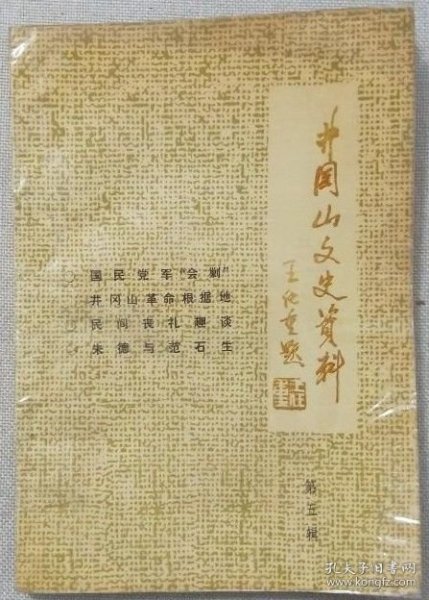 井冈山文史资料
王任重题
国民党军“会剿”
井冈山革命根据地
民间丧礼趣谈
朱德与范石生
第五辑
孔夫子旧书网
www.kongfz.com